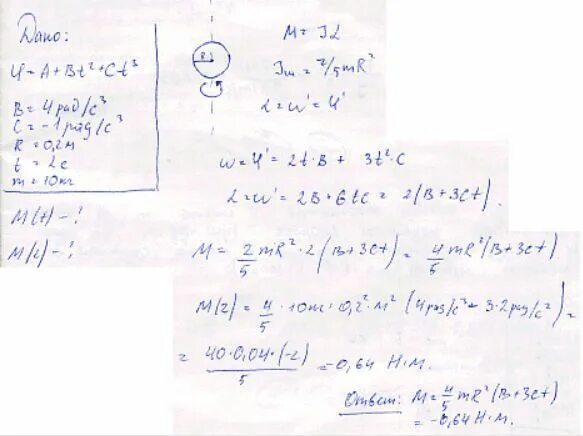 Дано:
φ = A + Bt² + Ct³
B = 4 рад/с³
C = -1 рад/с³
R = 0,2м
t = 2с
m = 10кг
M(t) - ?
M(2) - ?
R
M = Jα
Jш = 2/5 mR²
α = ω' = φ''
ω = φ' = 2t·B + 3t²·C
α = ω' = 2B + 6tC = 2(B+3Ct).
M = 2/5 mR²·2(B+3Ct) = 4/5 mR²(B+3Ct)
M(2) = 4/5 · 10кг · 0,2² · м² (4рад/с² - 3·2рад/с²) =
= 40·0,04·(-2)/5 = -0,64 Н·м.
Ответ: M = 4/5 mR²(B+3Ct)
= -0,64 Н·м.